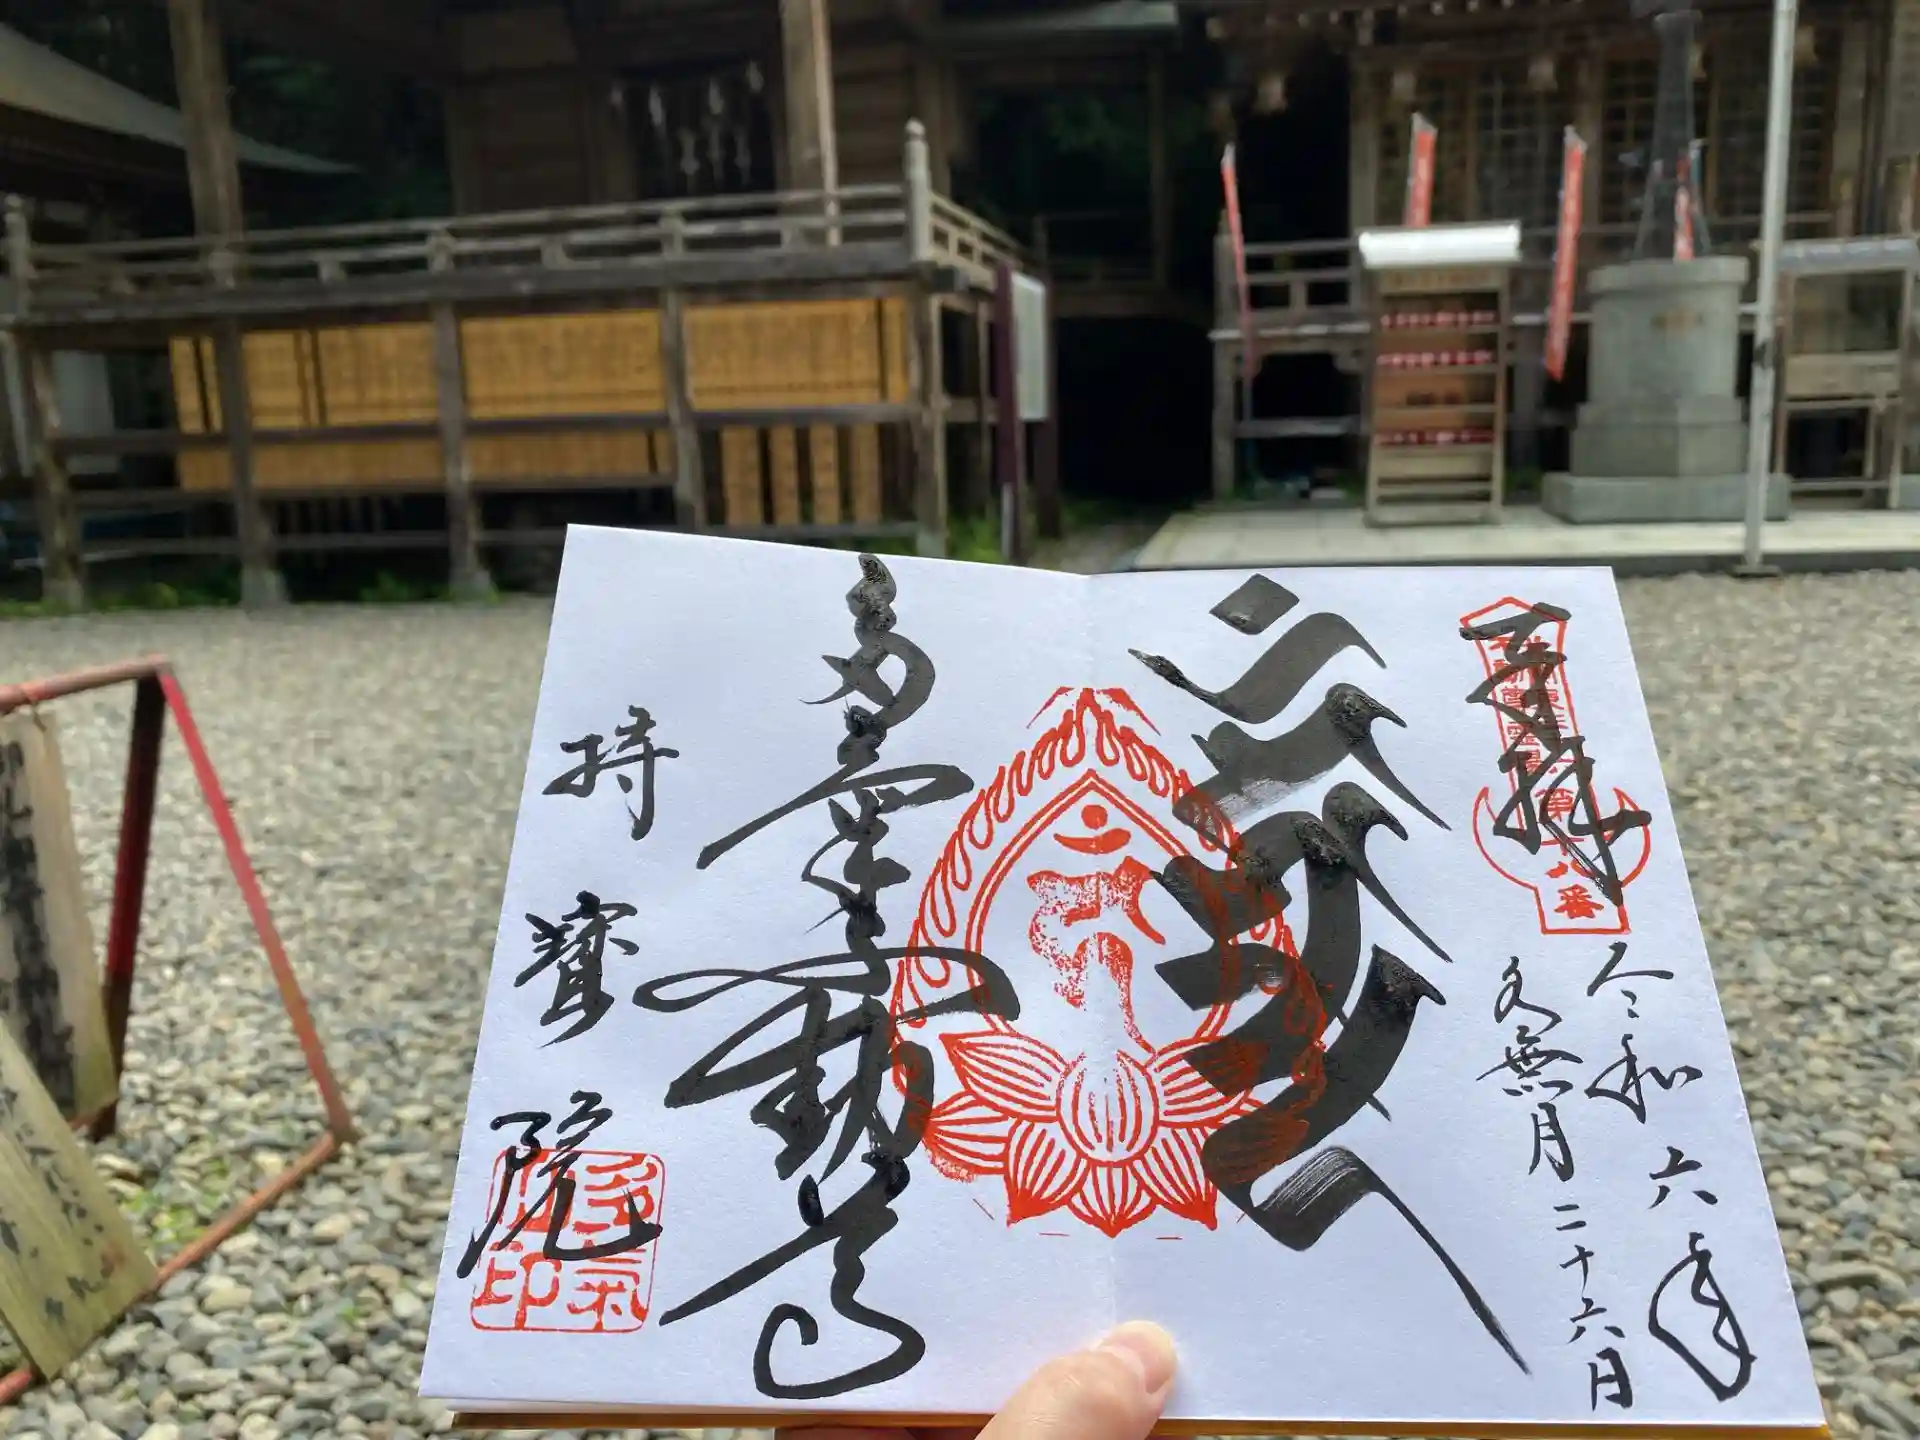 奉拝
第十八番
令和六年
水無月二十六日
多氣不動尊
持寶院